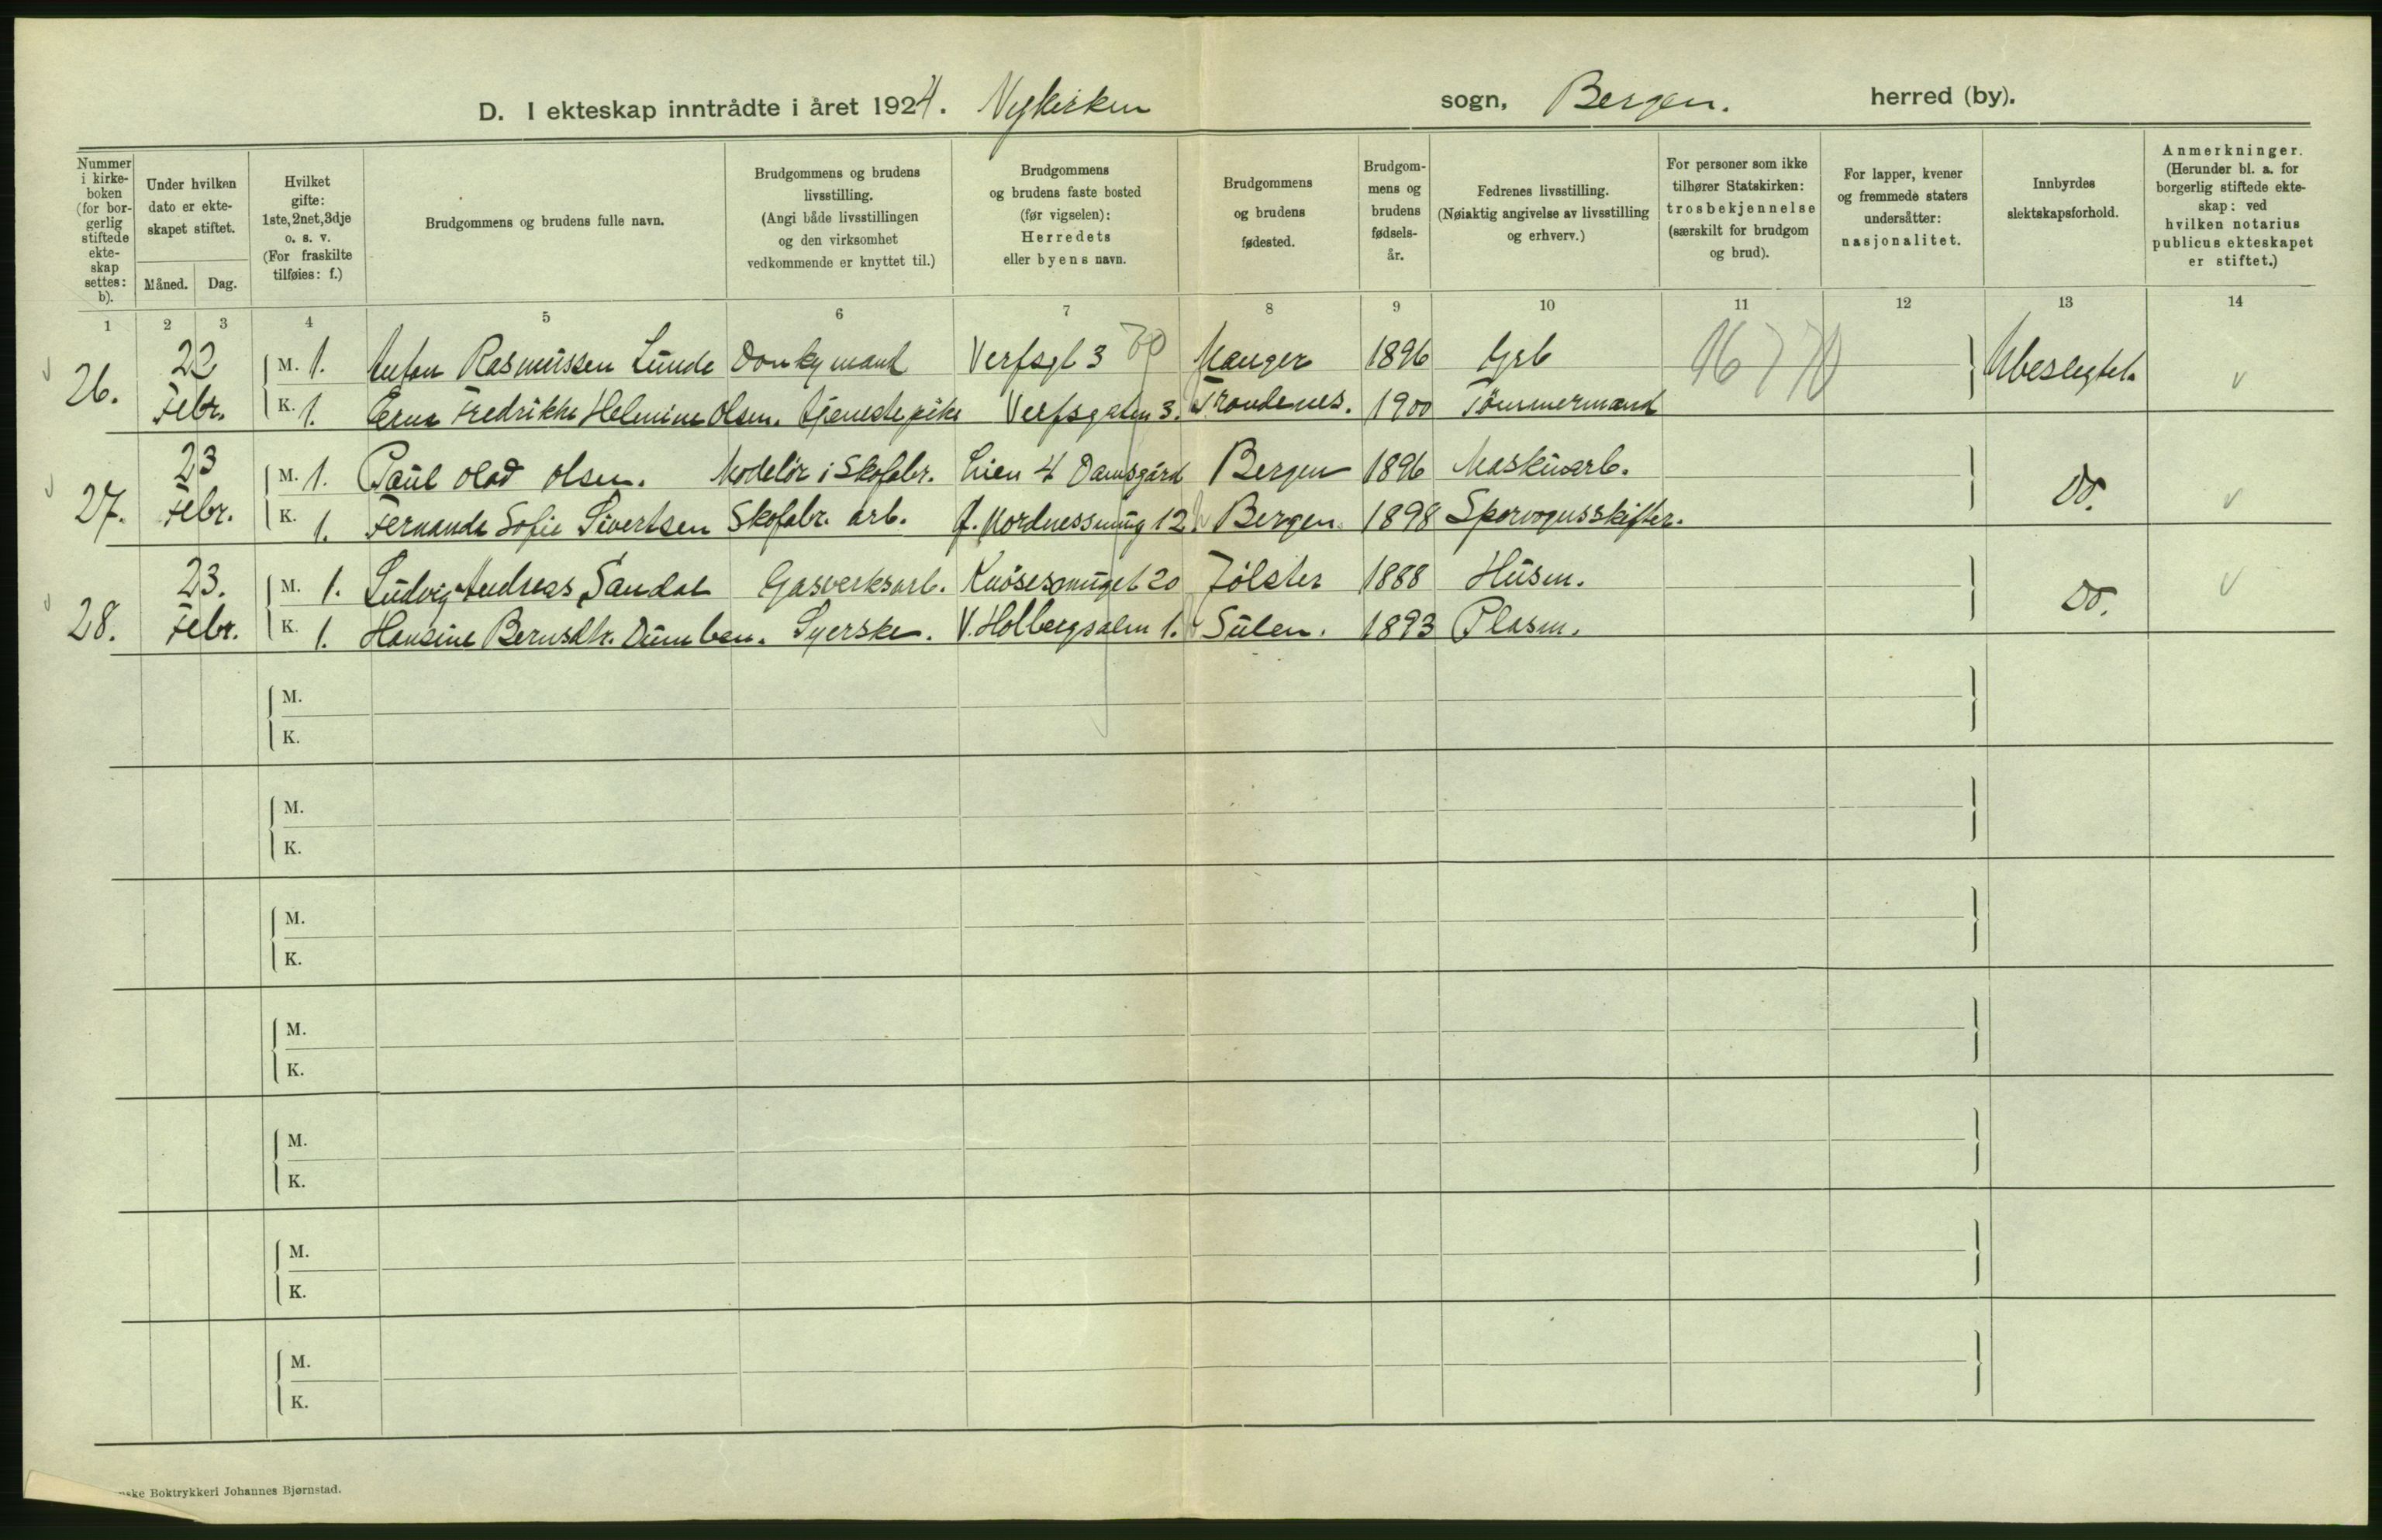 D. I ekteskap inntrådte i året 1924. Nykirken sogn, Bergen. herred (by).
Nummer i kirke-boken (for bor-gerlig stiftede ekte-skap settes: b).
Under hvilken dato er ekte-skapet stiftet.
Måned. Dag.
Hvilket gifte: 1ste, 2net, 3dje o. s. v. (For fraskilte tilføies: f.)
Brudgommens og brudens fulle navn.
Brudgommens og brudens livsstilling. (Angi både livsstillingen og den virksomhet vedkommende er knyttet til.)
Brudgommens og brudens faste bosted (før vigselen): Herredets eller byens navn.
Brudgommens og brudens fødested.
Brudgom-mens og brudens fødsels-år.
Fedrenes livsstilling. (Nøiaktig angivelse av livsstilling og erhverv.)
For personer som ikke tilhører Statskirken: trosbekjennelse (særskilt for brudgom og brud).
For lapper, kvener og fremmede staters undersåtter: nasjonalitet.
Innbyrdes slektskapsforhold.
Anmerkninger. (Herunder bl. a. for borgerlig stiftede ekte-skap: ved hvilken notarius publicus ekteskapet er stiftet.)
1 2 3 4 5 6 7 8 9 10 11 12 13 14
26. 22 Febr. M. 1. Anton Rasmussen Lunde Donkymand Verfsgt 3 Manger 1896 Grb Ubeslegtet.
K. 1. Erna Fredrikke Helmine Olsen. tjenestepike Verfsgaten 3. Trondenes. 1900 Tømmermand
27. 23 Febr. M. 1. Paul Olad Olsen. Modelør i Skofabr. Lien 4 Damsgård Bergen 1896 Maskinarb. Do.
K. 1. Fernanda Sofie Sivertsen Skofabr. arb. Nordnessmug 12. Bergen. 1898 Sporvognsskifter.
28. 23. Febr. M. 1. Ludvig Andreas Sandal Gasverksarb. Knøsesmuget 20 Jølster 1888 Husm. Do.
K. 1. Hansine Berns Dumben. Syerske. V. Holbergsalm 1. Sulen. 1893 Plasm.
M.
K.
M.
K.
M.
K.
M.
K.
M.
K.
M.
K.
M.
K.
ske Boktrykkeri Johannes Bjørnstad.